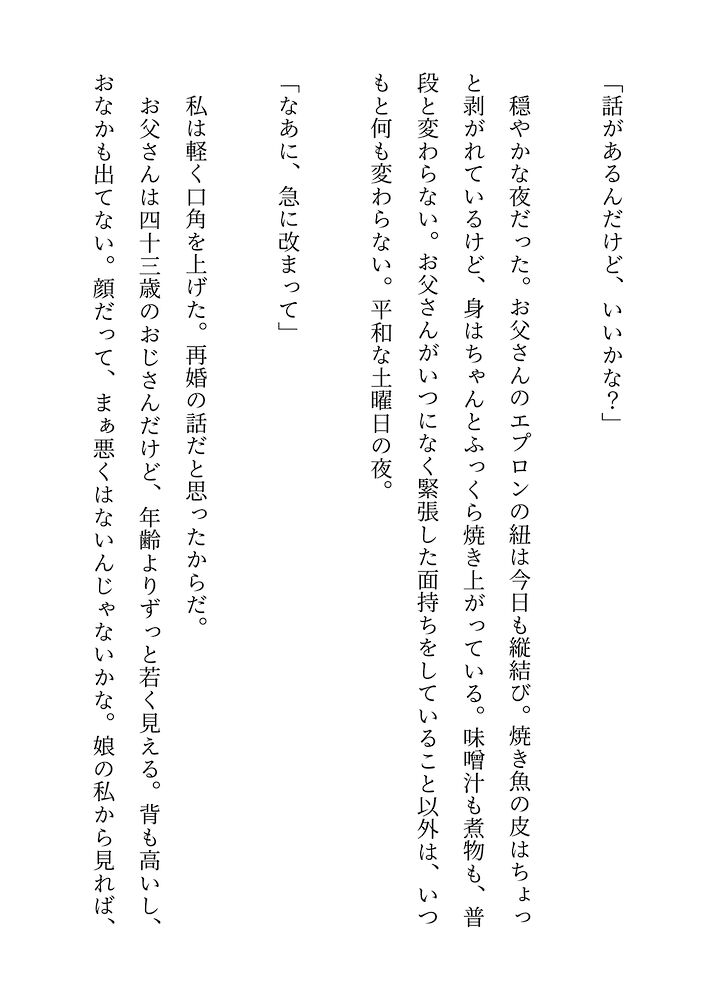 「話があるんだけど、いいかな？」
　穏やかな夜だった。お父さんのエプロンの紐は今日も縦結び。焼き魚の皮はちょっ
と剥がれているけど、身はちゃんとふっくら焼き上がっている。味噌汁も煮物も、普
段と変わらない。お父さんがいつになく緊張した面持ちをしていること以外は、いつ
もと何も変わらない。平和な土曜日の夜。
「なあに、急に改まって」
　私は軽く口角を上げた。再婚の話だと思ったからだ。
　お父さんは四十三歳のおじさんだけど、年齢よりずっと若く見える。背も高いし、
おなかも出てない。顔だって、まぁ悪くはないんじゃないかな。娘の私から見れば、